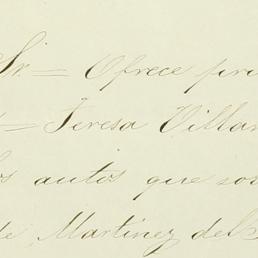 Sr = Ofrece
= Teresa Villa
los autos que so
de Martinez del